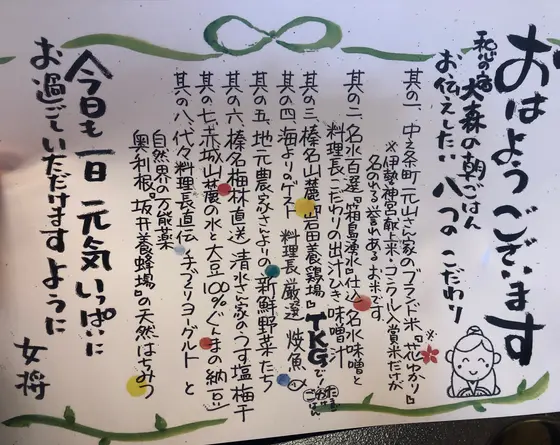 おはようございます
和心の宿 大森の朝ごはん
お伝えしたい 八つの こだわり
其の一、中之条町 元山さん家のブランド米『花ゆかり』※
※伊勢神宮献上米・コンクール入賞米だけが
名のれる誉れある お米です
其の二、名水百選『箱島湧水』仕込 名水味噌と
料理長こだわりの出汁びき 味噌汁
其の三、榛名山麓『岩田養鶏場』TKGで
たまご
かけ
ごはん
其の四、海よりのゲスト 料理長 厳選 焼魚
其の五、地元農家さんよりの 新鮮野菜たち
其の六、榛名梅林直送 清水さん家のうす塩 梅干
其の七、赤城山麓の水と大豆100%ぐんまの納豆
其の八、代々料理長直伝 手づくりヨーグルト と
自然界の万能薬
奥利根『坂井養蜂場』の天然はちみつ
今日も一日 元気いっぱいに
お過ごしいただけますように
女将